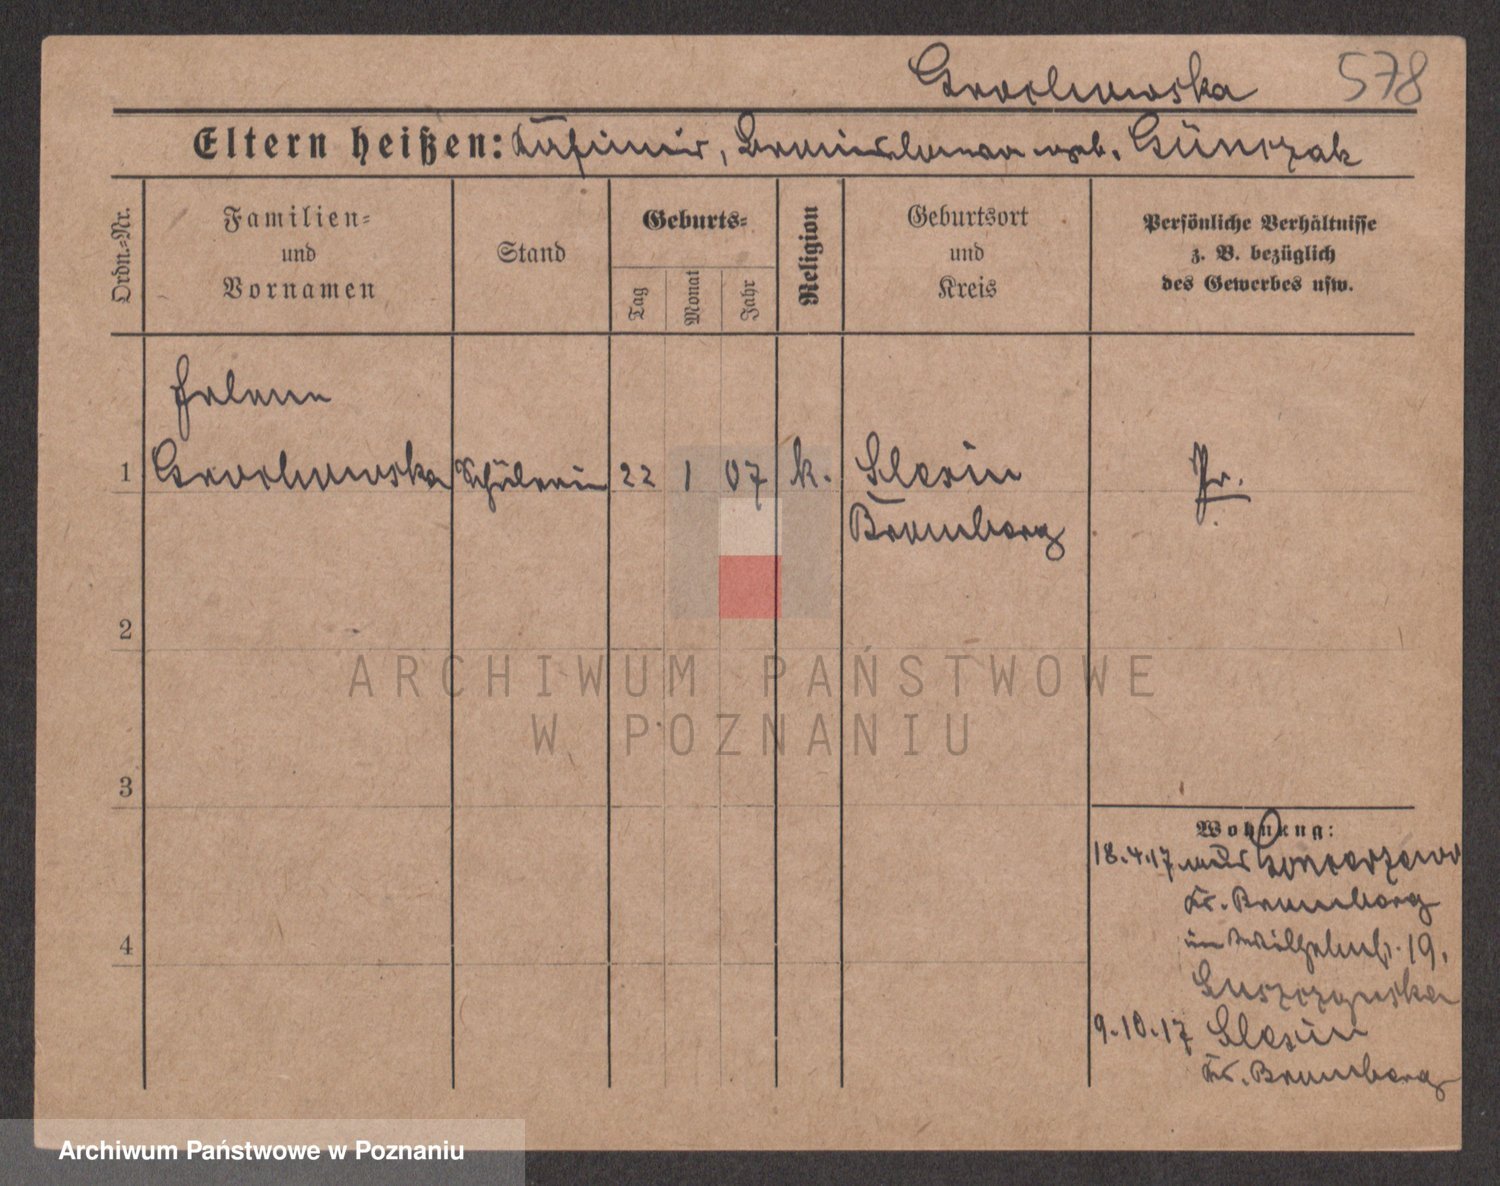 Grochowska 578
Eltern heißen: Kasimir, Bronislawa geb. Günczak
Ordn.=Nr.
Familien=
und
Vornamen
Stand
Geburts=
Tag
Monat
Jahr
Religion
Geburtsort
und
Kreis
Persönliche Verhältnisse
z. B. bezüglich
des Gewerbes usw.
Helene
1 Grochowska Schülerin 22 1 07 k. Slesin Pr.
Bromberg
2
3
4
ARCHIWUM PAŃSTWOWE
W POZNANIU
Wohnung:
18.4.17 aus Goncarzewo
Kr. Bromberg
in Wilhelmstr. 19.
9.10.17 Slesin
Kr. Bromberg
Archiwum Państwowe w Poznaniu